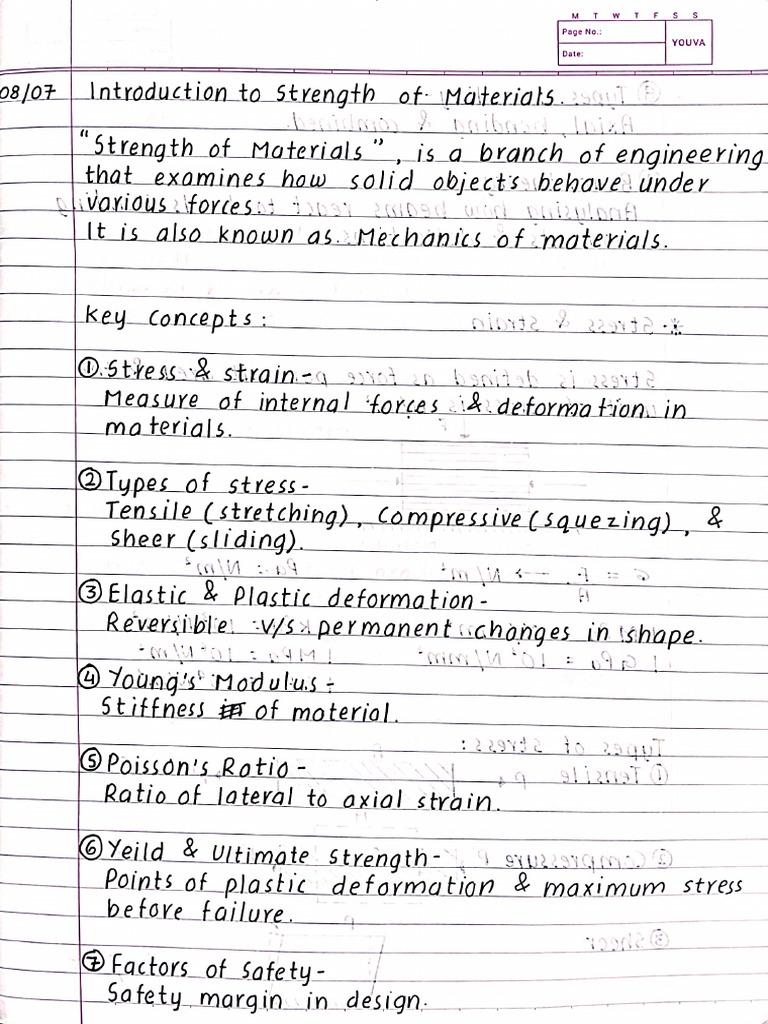 M T W T F S S
Page No.:
Date:
YOUVA
08/07 Introduction to Strength of Materials.
"Strength of Materials", is a branch of engineering
that examines how solid objects behave under
various forces
It is also known as Mechanics of materials.
Key Concepts:
① Stress & strain-
Measure of internal forces & deformation in
materials.
② Types of stress-
Tensile (stretching), Compressive (squezing), &
Sheer (sliding).
③ Elastic & Plastic deformation-
Reversible v/s permanent changes in shape.
④ Young's Modulus-
Stiffness of material.
⑤ Poisson's Ratio-
Ratio of lateral to axial strain.
⑥ Yeild & Ultimate Strength-
Points of plastic deformation & maximum stress
before failure.
⑦ Factors of Safety-
Safety margin in design.